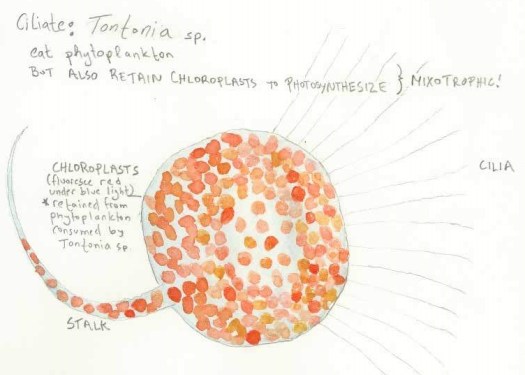 Ciliate: Tontonia sp.
eat phytoplankton
BUT ALSO RETAIN CHLOROPLASTS to PHOTOSYNTHESIZE } MIXOTROPHIC!
CILIA
CHLOROPLASTS
(fluoresce red
under blue light)
* retained from
phytoplankton
consumed by
Tontonia sp
STALK